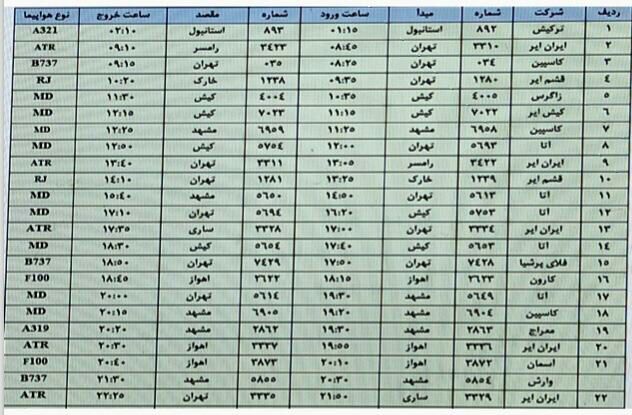 ردیف شرکت شماره مبدا ساعت ورود شماره مقصد ساعت خروج نوع هواپیما
۱ ترکیش ۸۹۲ استانبول ۰۱:۱۵ ۸۹۳ استانبول ۰۲:۱۰ A321
۲ ایران ایر ۳۳۱۰ تهران ۰۸:۴۵ ۳۴۲۳ رامسر ۰۹:۱۰ ATR
۳ کاسپین ۰۳۴ تهران ۰۸:۲۵ ۰۳۵ تهران ۰۹:۱۵ B737
۴ قشم ایر ۱۲۸۰ تهران ۰۹:۳۵ ۱۲۳۸ خارک ۱۰:۲۰ RJ
۵ زاگرس ۴۰۰۵ کیش ۱۰:۳۵ ۴۰۰۴ کیش ۱۱:۳۰ MD
۶ کیش ایر ۷۰۲۲ کیش ۱۱:۱۵ ۷۰۲۳ کیش ۱۲:۱۵ MD
۷ کاسپین ۶۹۵۸ مشهد ۱۱:۲۵ ۶۹۵۹ مشهد ۱۲:۲۵ MD
۸ آتا ۵۶۹۳ تهران ۱۲:۰۰ ۵۷۵۴ کیش ۱۲:۵۰ MD
۹ ایران ایر ۳۴۲۲ رامسر ۱۳:۰۵ ۳۳۱۱ تهران ۱۳:۴۰ ATR
۱۰ قشم ایر ۱۲۳۹ خارک ۱۳:۲۵ ۱۲۸۱ تهران ۱۴:۱۰ RJ
۱۱ آتا ۵۶۱۳ تهران ۱۴:۵۰ ۵۶۵۰ مشهد ۱۵:۴۰ MD
۱۲ آتا ۵۷۵۳ کیش ۱۶:۲۰ ۵۶۹۴ تهران ۱۷:۱۰ MD
۱۳ ایران ایر ۳۳۳۴ تهران ۱۷:۰۰ ۳۳۲۸ ساری ۱۷:۳۵ ATR
۱۴ آتا ۵۶۵۳ کیش ۱۷:۴۰ ۵۶۵۴ کیش ۱۸:۳۰ MD
۱۵ فلای پرشیا ۷۴۲۸ تهران ۱۷:۵۰ ۷۴۲۹ تهران ۱۸:۵۰ B737
۱۶ کارون ۲۶۲۳ اهواز ۱۸:۱۵ ۲۶۲۲ اهواز ۱۸:۴۵ F100
۱۷ آتا ۵۶۴۹ مشهد ۱۹:۳۰ ۵۶۱۴ تهران ۲۰:۰۰ MD
۱۸ کاسپین ۶۹۰۴ مشهد ۱۹:۲۰ ۶۹۰۵ مشهد ۲۰:۱۵ MD
۱۹ معراج ۲۸۶۳ مشهد ۱۹:۳۰ ۲۸۶۲ مشهد ۲۰:۲۰ A319
۲۰ ایران ایر ۳۳۳۶ اهواز ۱۹:۵۵ ۳۳۳۷ اهواز ۲۰:۳۰ ATR
۲۱ آسمان ۳۸۷۲ اهواز ۲۰:۱۰ ۳۸۷۳ اهواز ۲۰:۴۰ F100
وارش ۵۸۵۴ مشهد ۲۰:۳۰ ۵۸۵۵ مشهد ۲۱:۳۰ B737
۲۲ ایران ایر ۳۳۲۹ ساری ۲۱:۵۰ ۳۳۳۵ تهران ۲۲:۲۵ ATR